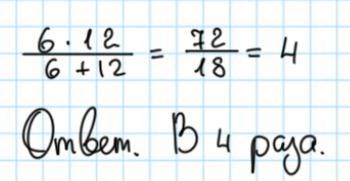 6 · 12 / 6 + 12 = 72 / 18 = 4
Ответ. В 4 раза.